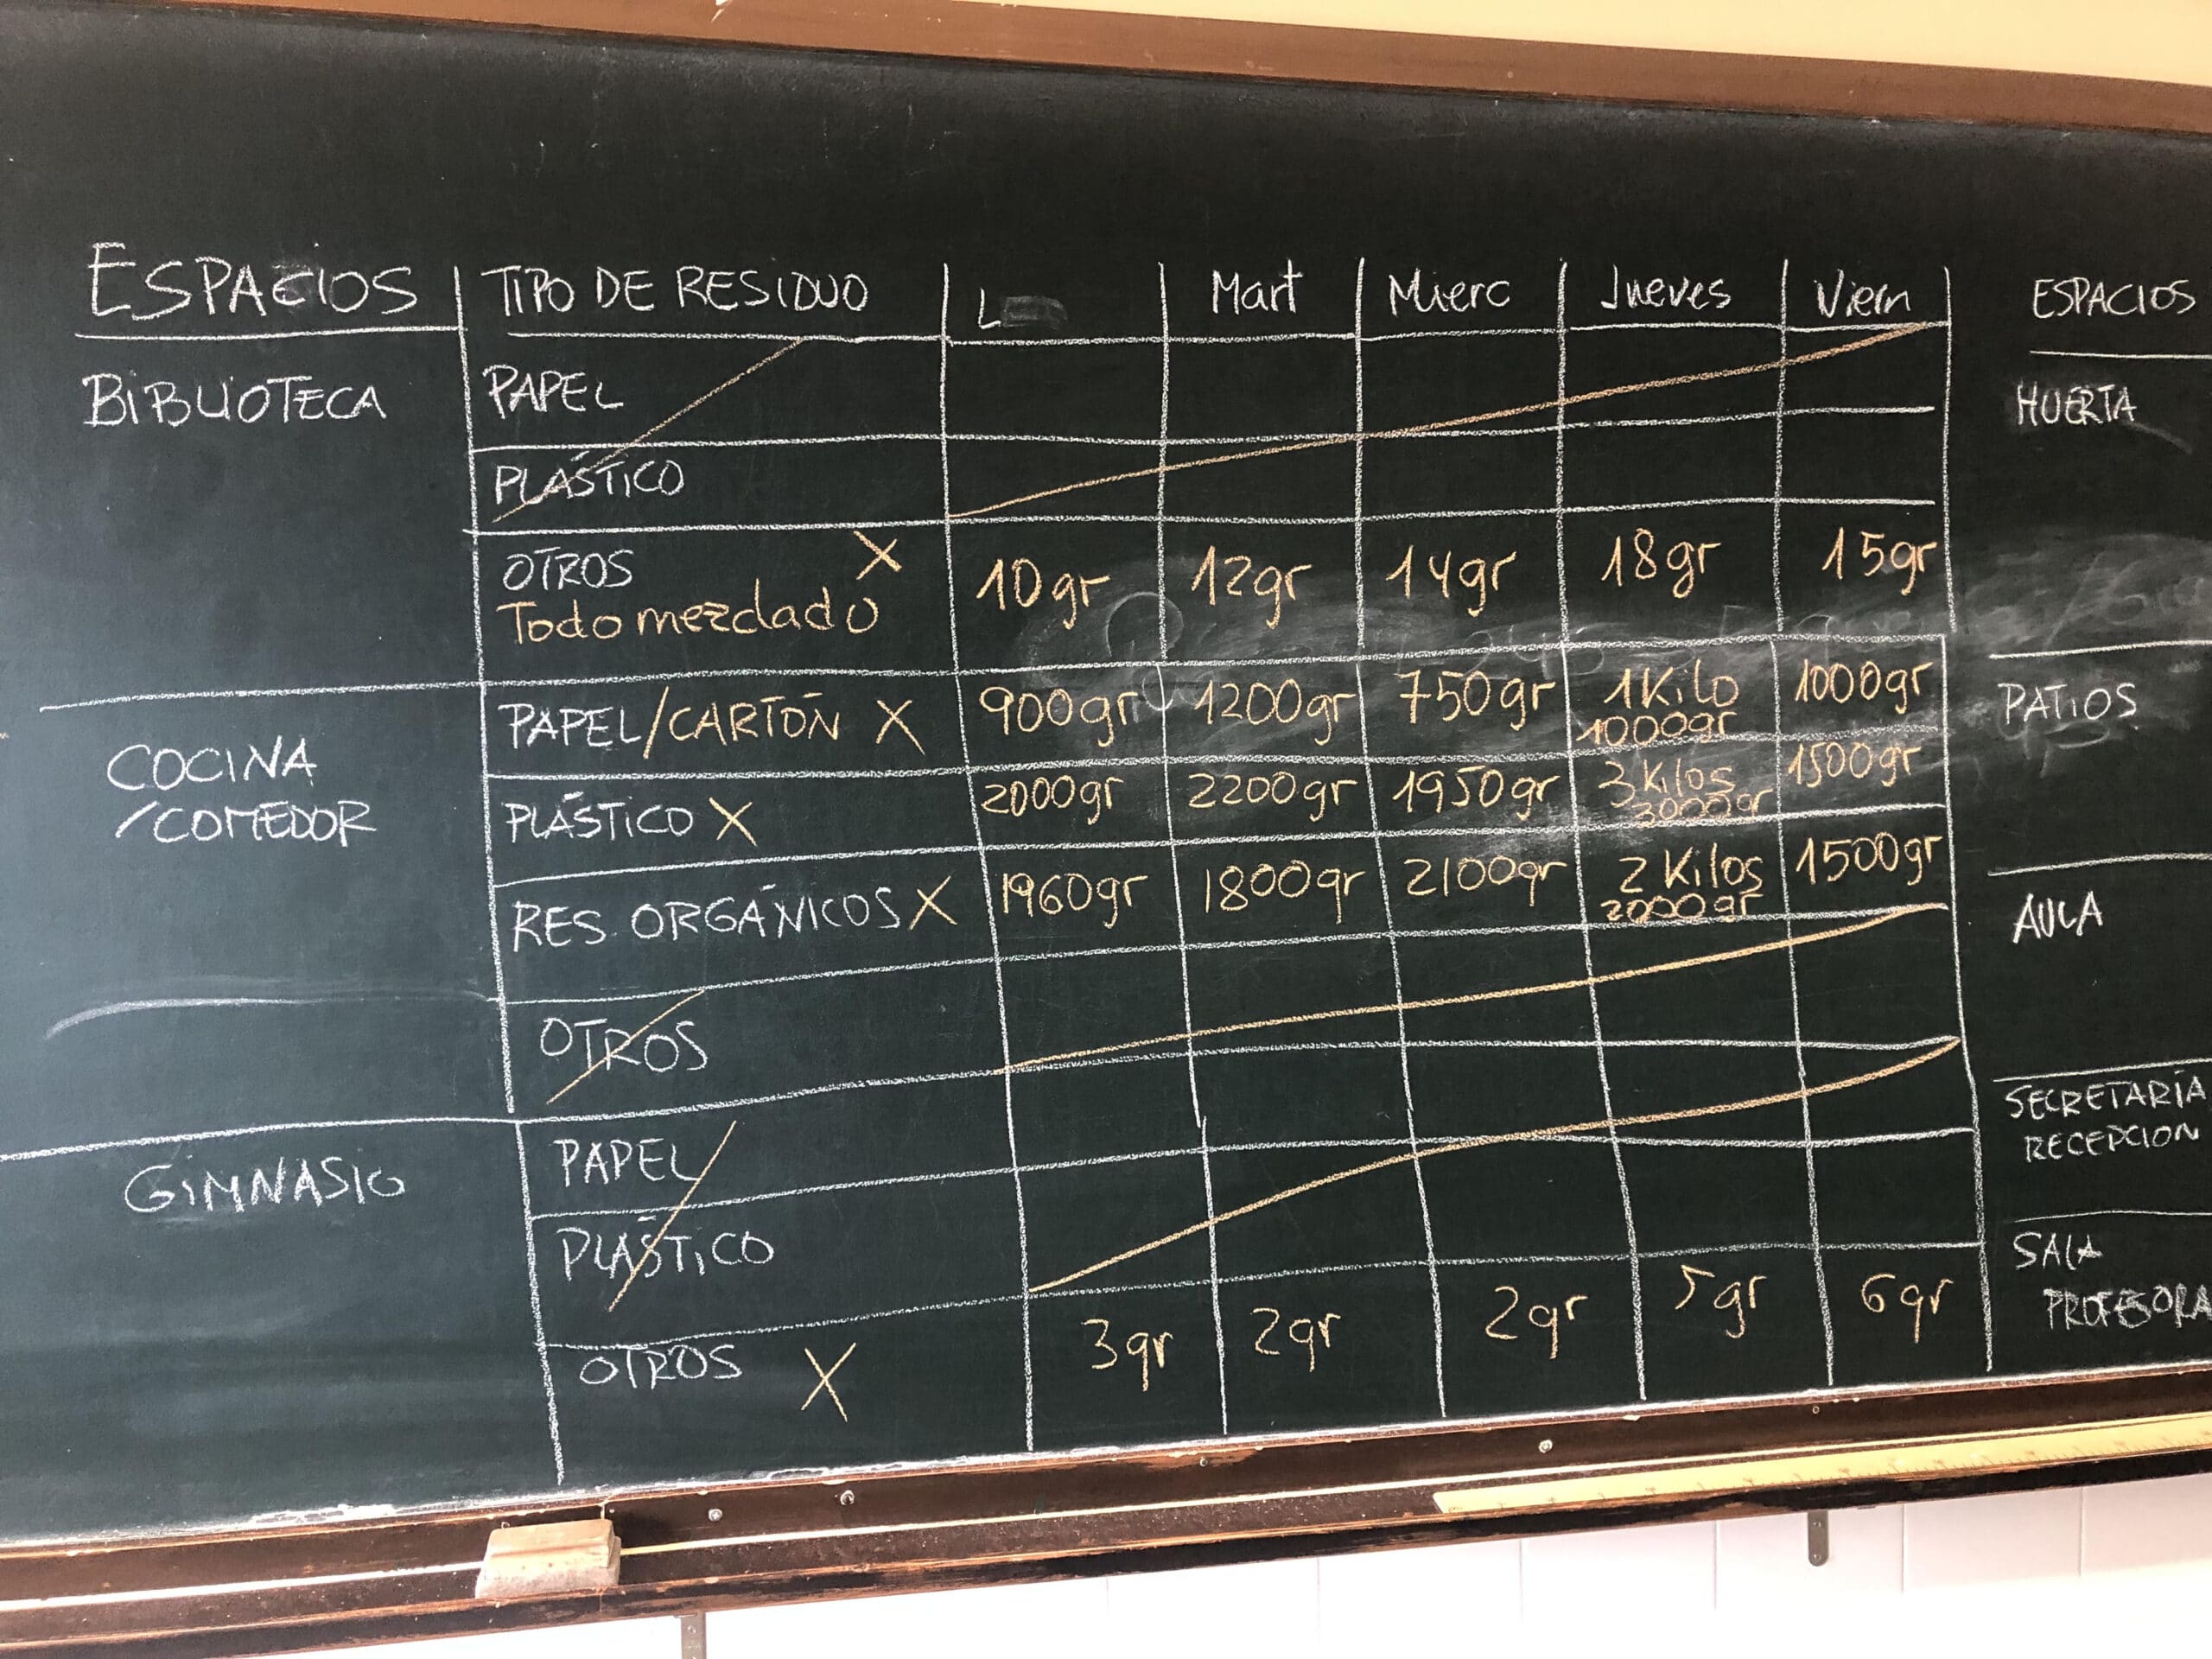 ESPACIOS TIPO DE RESIDUO L Mart Mierc Jueves Viern ESPACIOS
BIBLIOTECA PAPEL HUERTA
PLÁSTICO
OTROS X 10gr 12gr 14gr 18gr 15gr
Todo mezclado
PAPEL/CARTÓN X 900gr 1200gr 750gr 1Kilo 1000gr PATIOS
1000gr
COCINA
/COMEDOR PLÁSTICO X 2000gr 2200gr 1950gr 3Kilos 1500gr
3000gr
RES. ORGÁNICOS X 1960gr 1800gr 2100gr 2 Kilos 1500gr AULA
2000gr
OTROS
PAPEL SECRETARÍA
RECEPCION
GIMNASIO PLÁSTICO SALA
PROFESORA
OTROS X 3gr 2gr 2gr 5gr 6gr